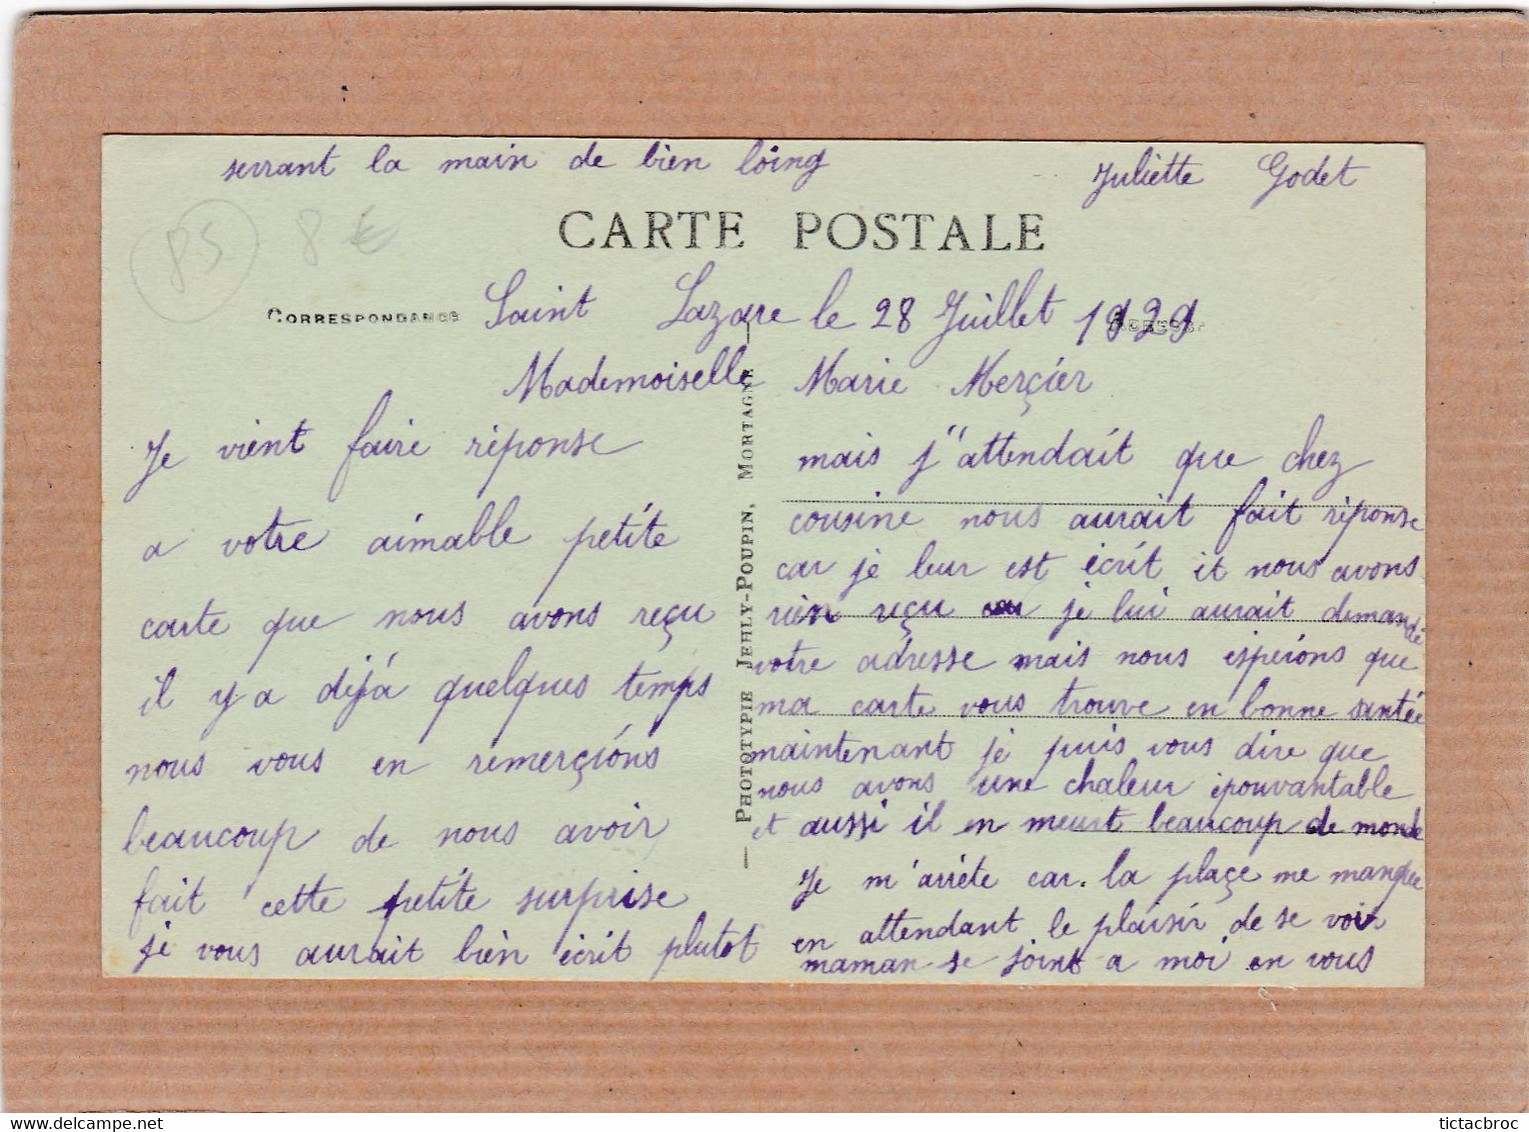 serrant la main de bien loing
Juliette Godet
CARTE POSTALE
85
8 €
CORRESPONDANCE
ADRESSE
Saint Lazare le 28 Juillet 1929
Mademoiselle Marie Merçier
Je vient faire réponse
a votre aimable petite
carte que nous avons reçu
il y a déjá quelques temps
nous vous en remerçions
beaucoup de nous avoir
fait cette petite surprise
je vous aurait bien écrit plutot
— PHOTOTYPIE JEHLY-POUPIN, MORTAGNE —
mais j'attendait que chez
cousine nous aurait fait réponse
car je leur est écrit et nous avons
rien reçu je lui aurait demandé
votre adresse mais nous espeions que
ma carte vous trouve en bonne santée
maintenant je puis vous dire que
nous avons une chaleur épouvantable
et aussi il en meurt beaucoup de monde
Je m'arréte car. la plaçe me manque
en attendant le plaisir de se voir
maman se joint a moi en vous
tictacbroc